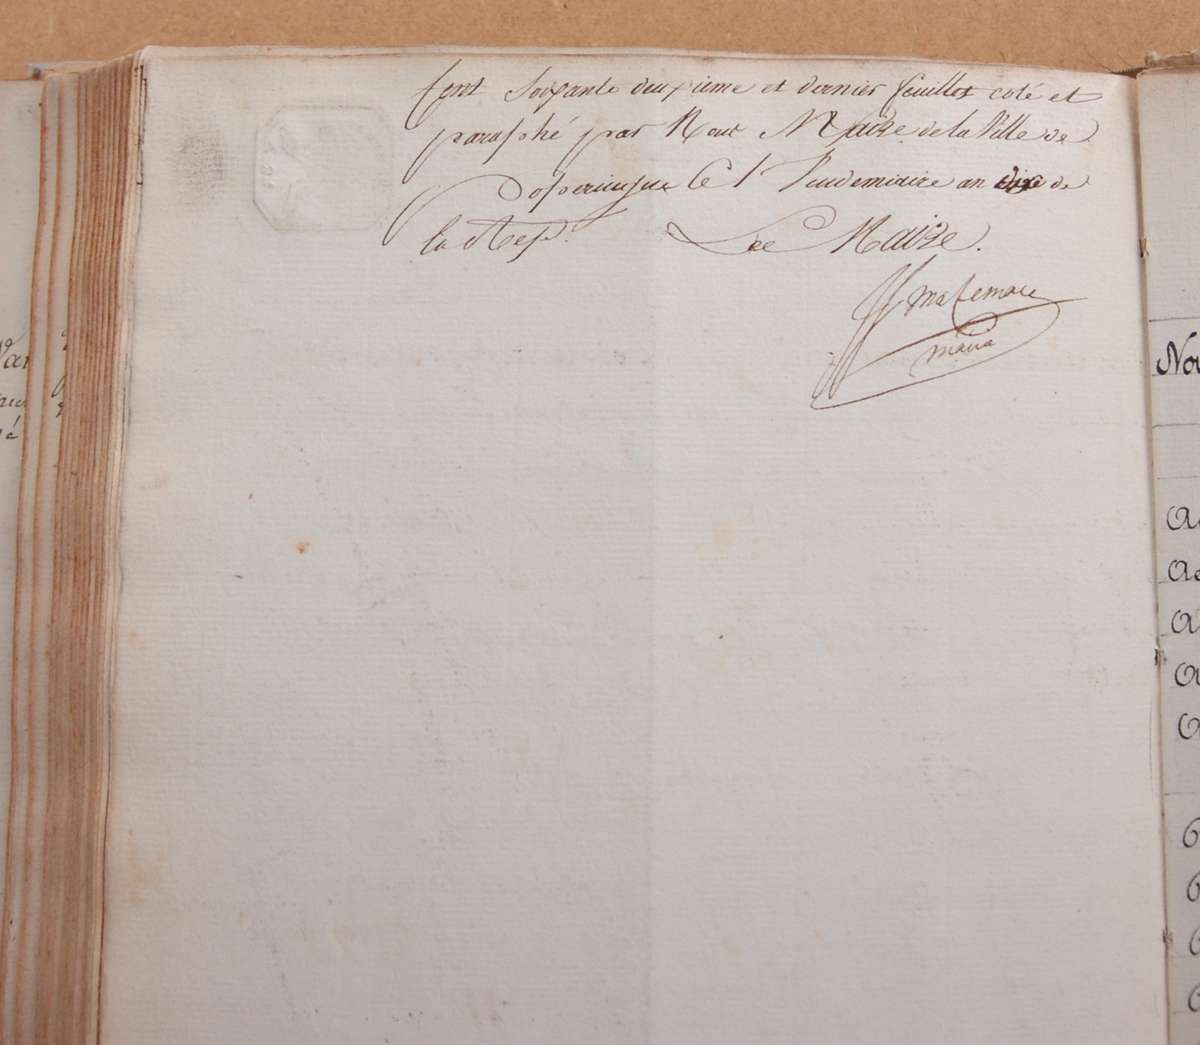 Cent Soixante deuxieme et dernier feuillet coté et
paraphé par Nous Maire de la Ville de
Poperingue Ce 1 Vendemiaire an dix de
la Rep.
Le Maire.
maire
Nou